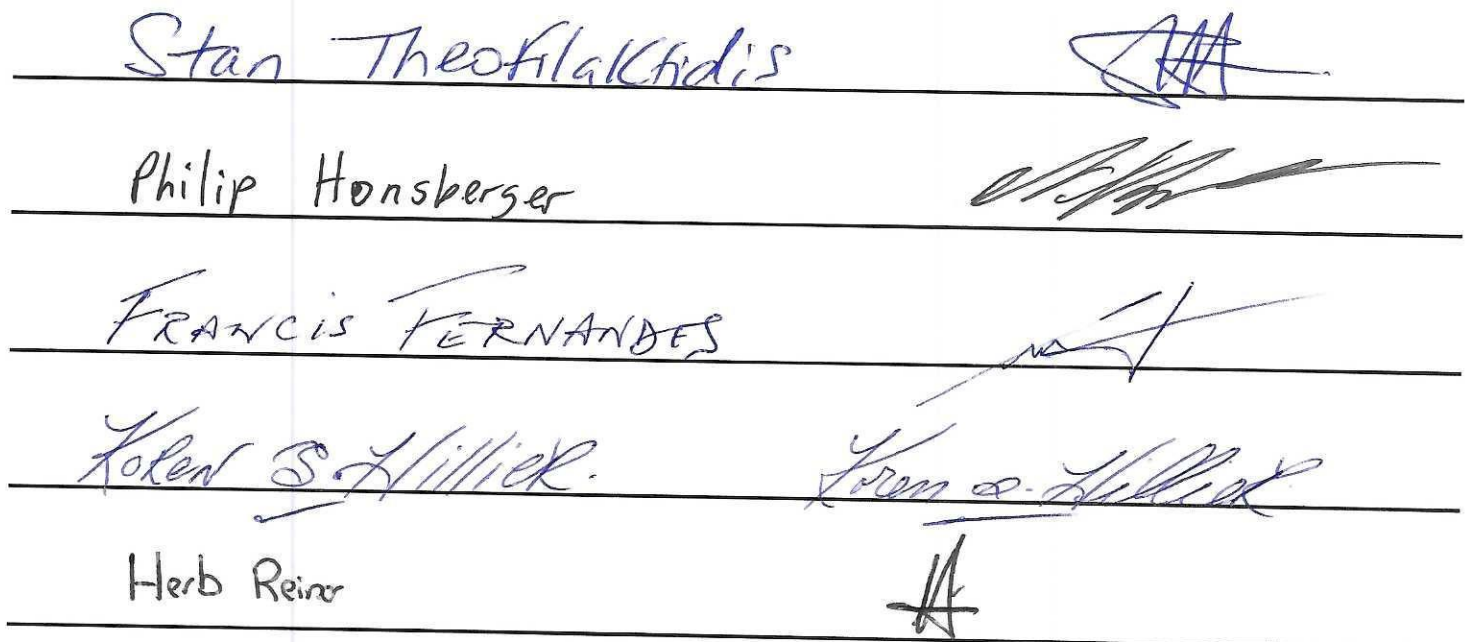 Stan Theofilaktidis
Philip Honsberger
FRANCIS FERNANDES
Koren S. Hillier. Koren S. Hillier
Herb Reiner